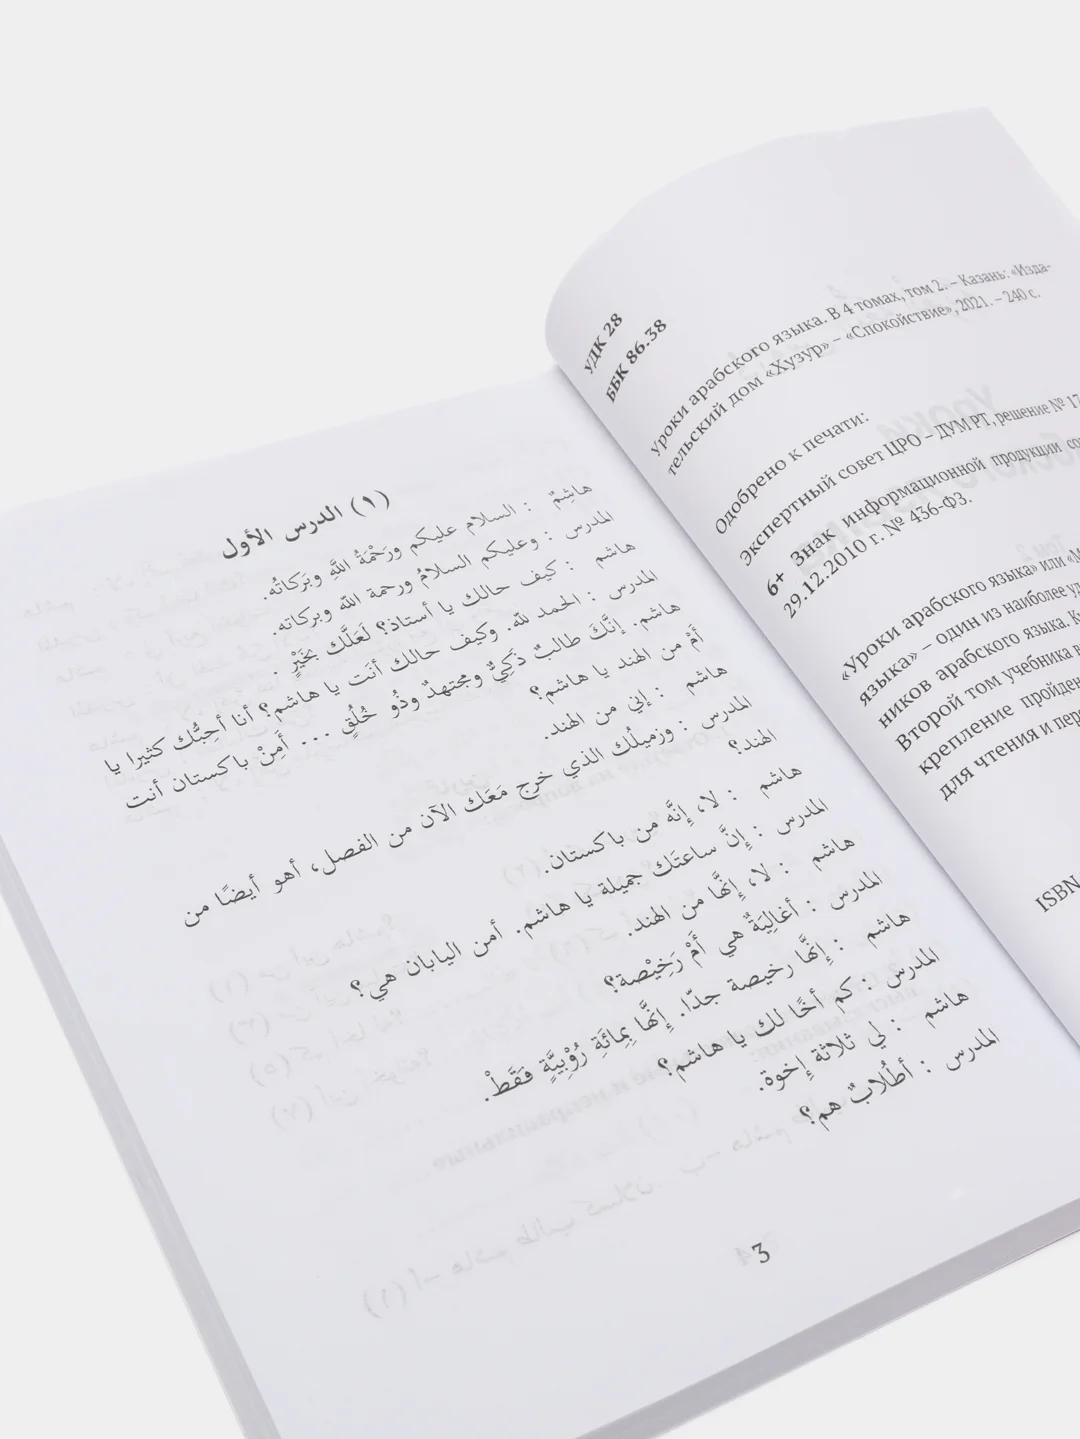 (١) الدرس الأول
هاشِمٌ : السلام عليكم ورَحْمَةُ اللَّهِ وبَرَكاتُه.
المدرس : وعليكم السلامُ ورحمة الله وبركاته.
هاشم : كيف حالك يا أستاذ؟ لَعَلَّك بخَيْرٍ .
المدرس : الحمد لله. وكيف حالك أنت يا هاشم؟ أنا أحِبُّك كثيرا يا
هاشم. إنَّكَ طالبٌ ذَكِيٌّ ومجتهدٌ وذُو خُلُقٍ ... أَمِنْ باكستان أنت
أَمْ من الهند يا هاشم؟
هاشم : إني من الهند.
المدرس : وزميلُك الذي خرج مَعَك الآن من الفصل، أهو أيضًا من
الهند؟
هاشم : لا، إِنَّه من باكستان.
المدرس : إنَّ ساعتَك جميلة يا هاشم. أمن اليابان هي؟
هاشم : لا، إِنَّهَا من الهند.
المدرس : أغالِيَةٌ هي أَمْ رَخِيْصة؟
هاشم : إِنَّهَا رخيصة جدًّا. إِنَّهَا بِمِائَةِ رُوْبِيَّةٍ فَقَطْ.
المدرس : كم أخًا لك يا هاشم؟
هاشم : لي ثلاثة إخوة.
المدرس : أطُلابٌ هم؟
3
УДК 28
ББК 86.38
Уроки арабского языка. В 4 томах, том 2. – Казань: «Изда-
тельский дом «Хузур» – «Спокойствие», 2021. – 240 с.
Одобрено к печати:
Экспертный совет ЦРО – ДУМ РТ, решение № 17
6+ Знак информационной продукции
29.12.2010 г. № 436-ФЗ.
«Уроки арабского языка» или
языка» – один из наиболее
ников арабского языка.
Второй том учебника
крепление пройден
для чтения и пер
ISBN